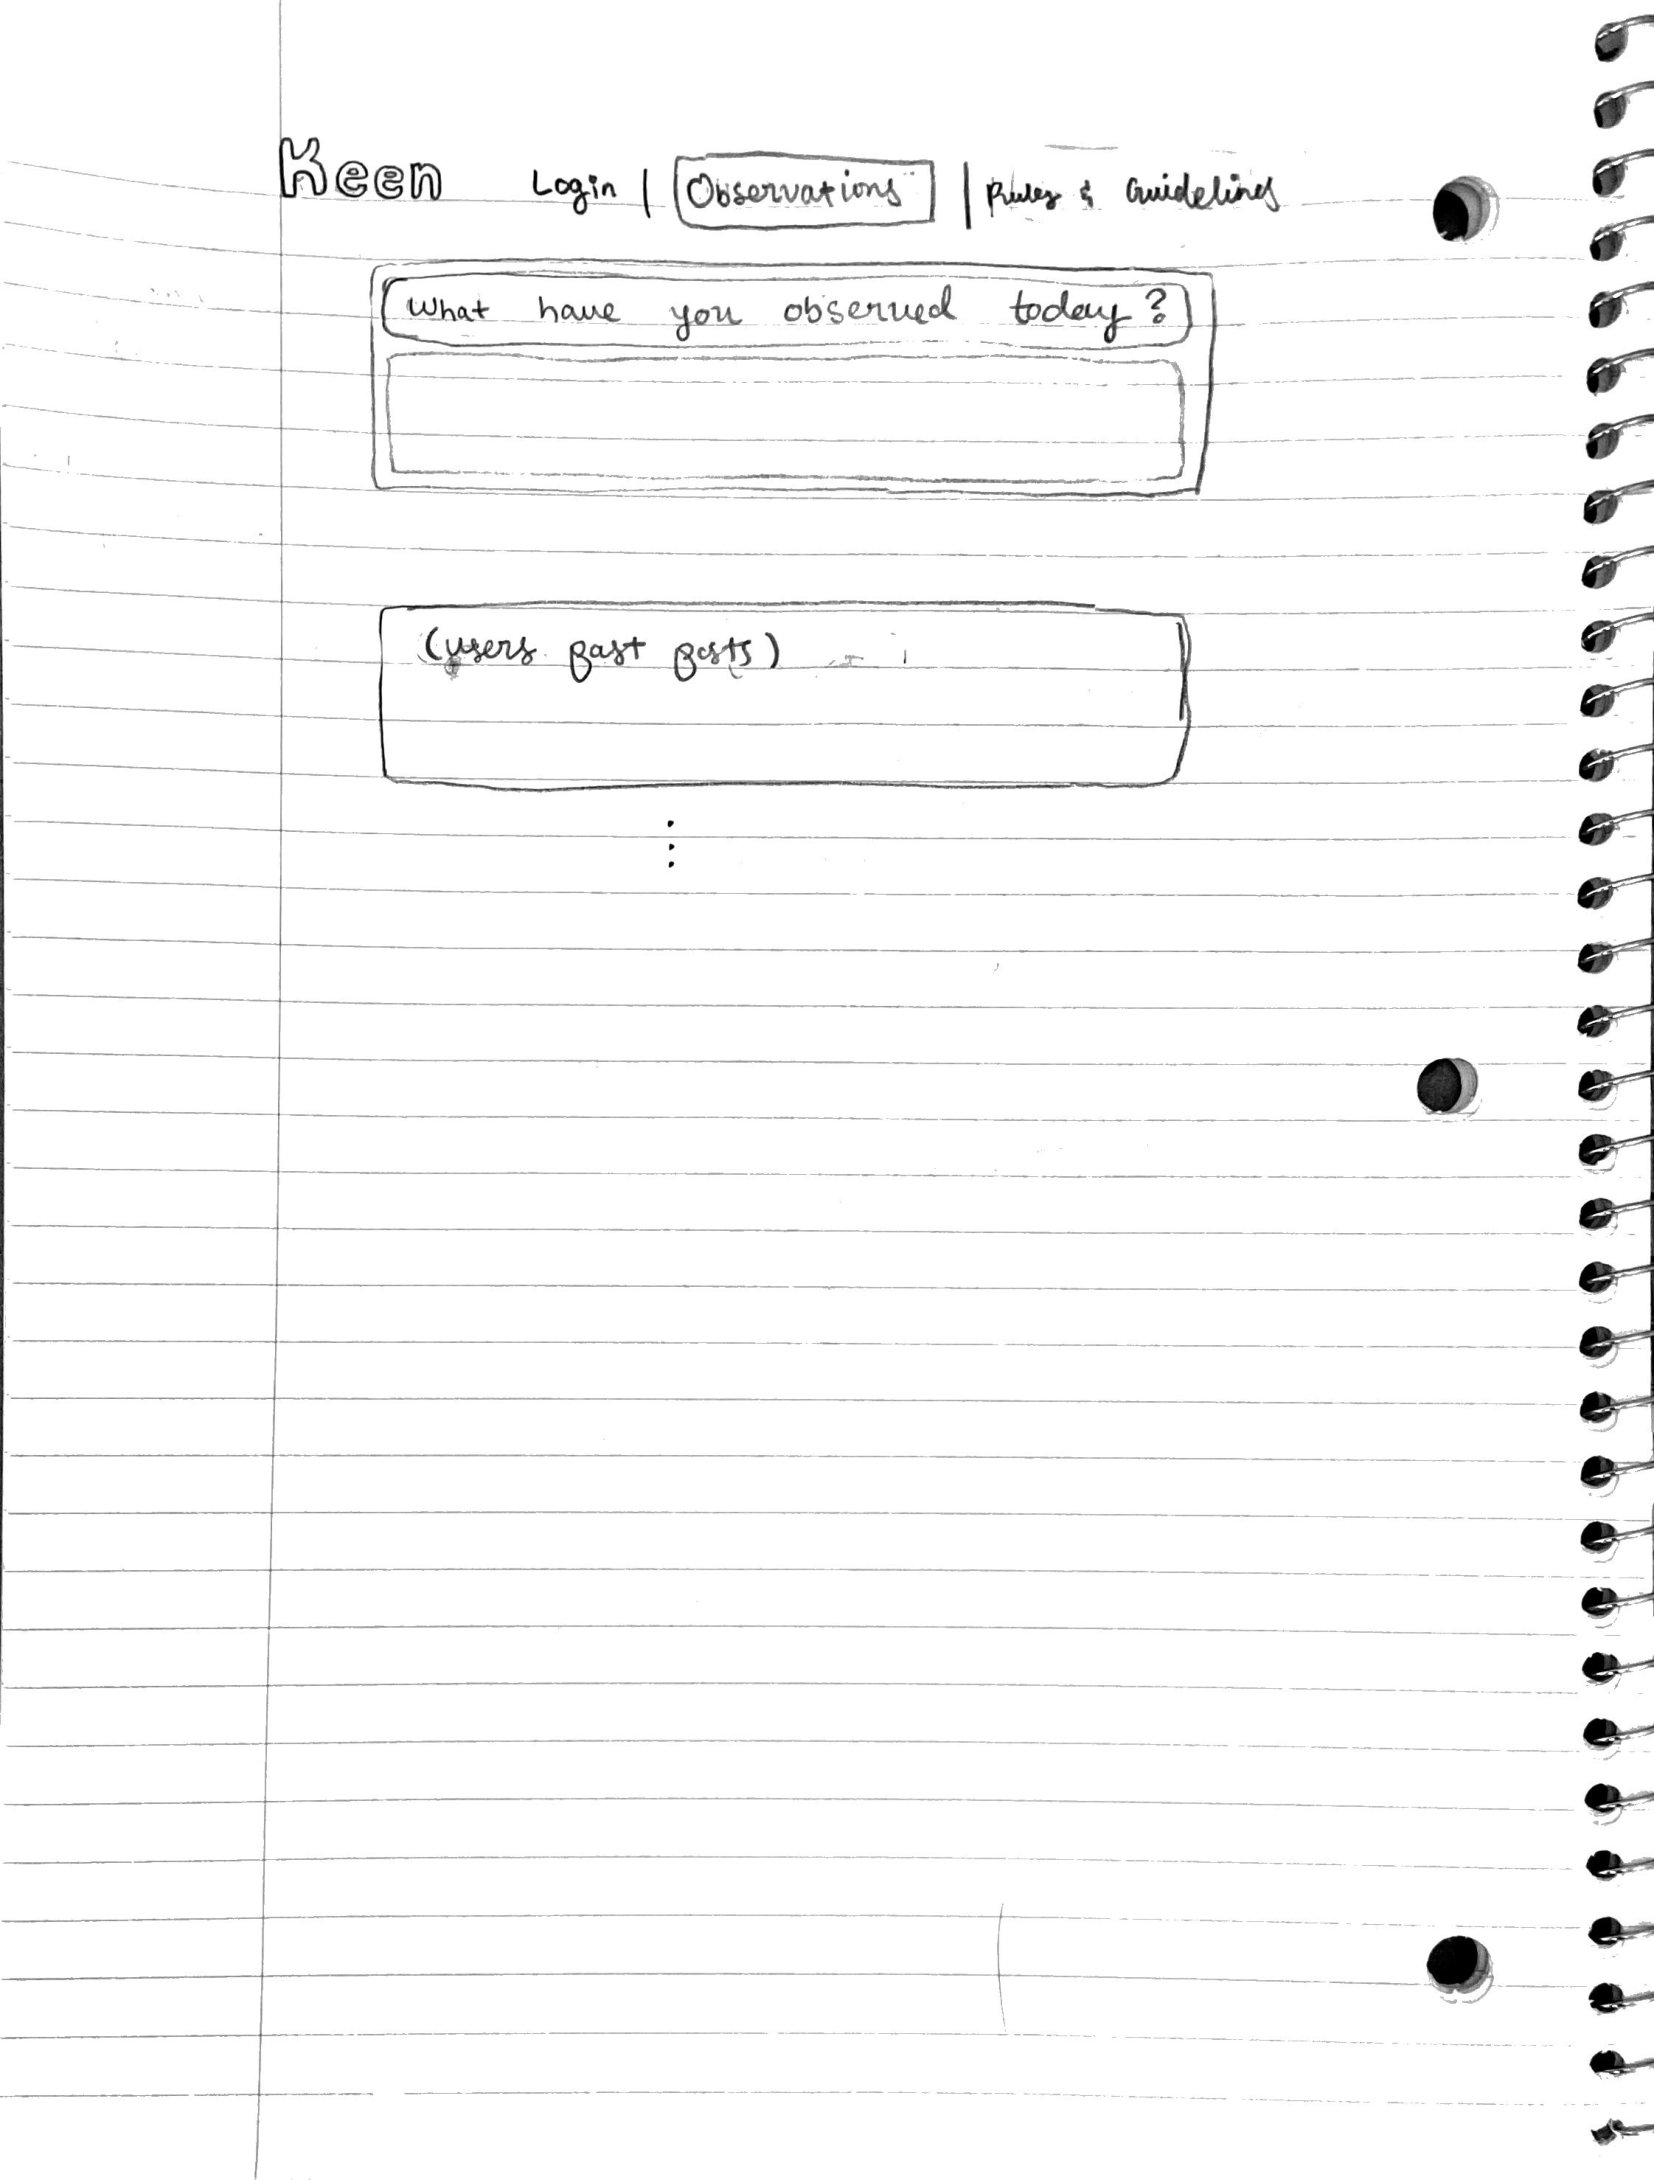 Keen Login | Observations | Rules & Guidelines
What have you observed today?
(users past posts)